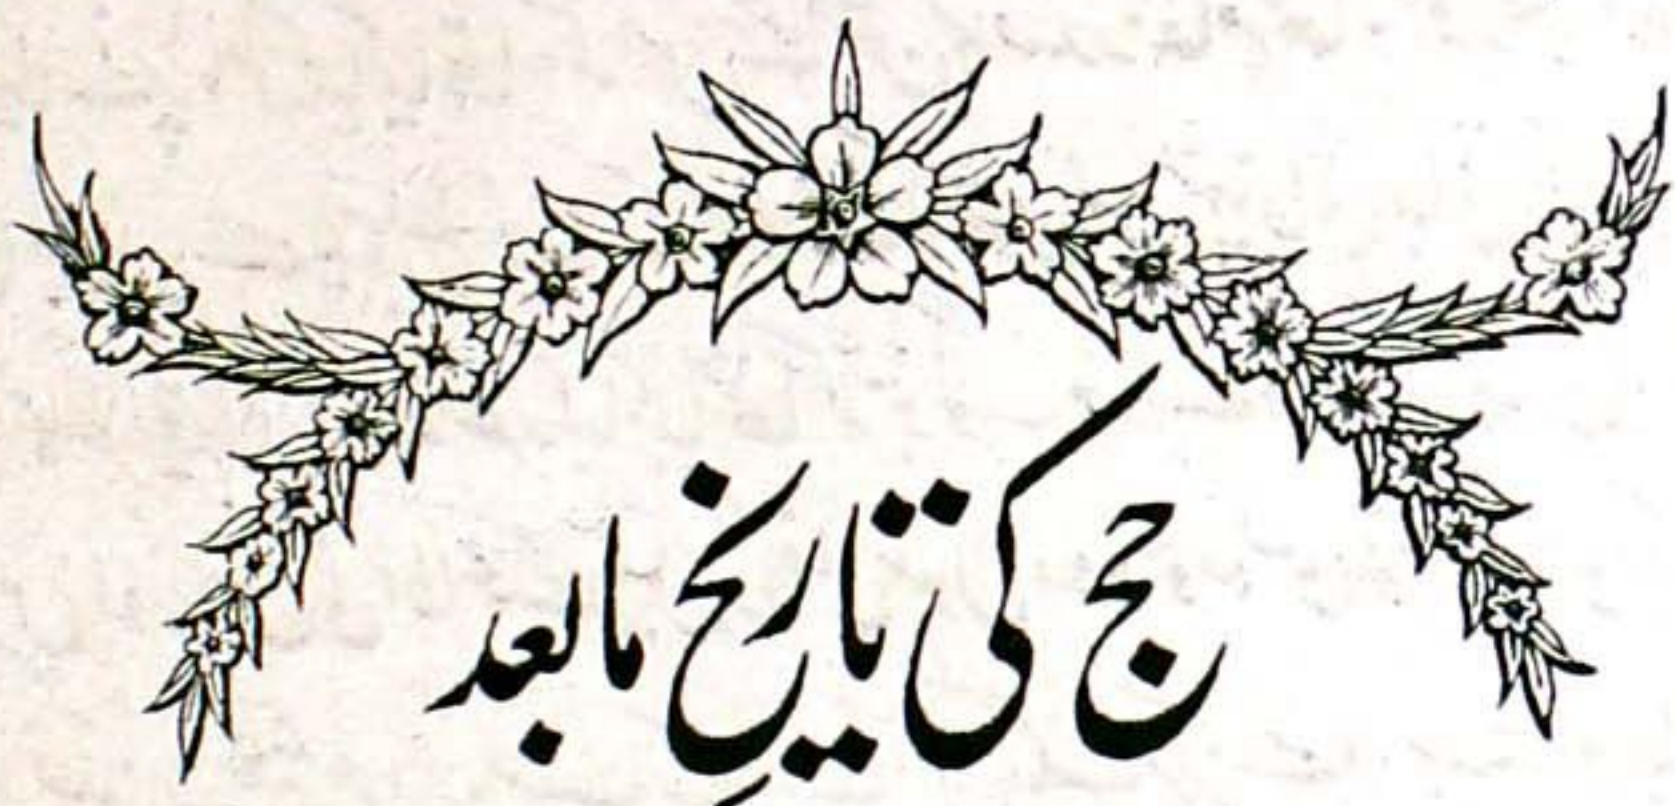 حج کی تاریخِ مابعد